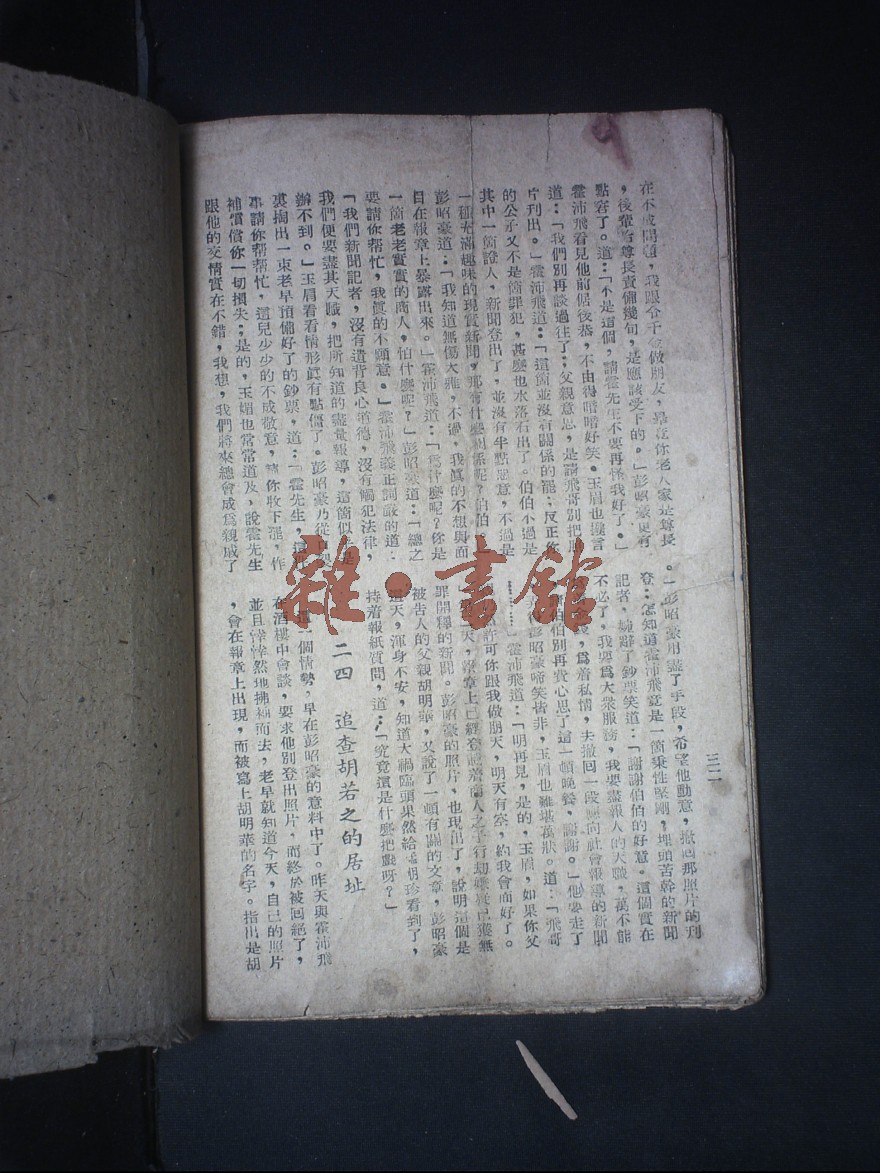 三二
在不成問題，我跟令千金做朋友，畢竟你老人家是尊長
，後輩 尊長責備幾句，是應該受下的。」彭昭豪更有
點窘了。道：「不是這個，請霍先生不要再怪我好了。」
霍沛飛看見他前倨後恭，不由得暗暗好笑。玉眉也接言
道：「我們別再談過往了；父親意思，是請飛哥別把照
片刊出。」霍沛飛道：「這箇並沒有關係的罷；反正你
的公子又不是箇罪犯，甚麽也水落石出了。伯伯不過是
其中一箇證人，新聞登出了，並沒有半點惡意，不過是
一種充滿趣味的現實新聞，那有什麽關係呢？伯伯。」
彭昭豪道：「我知道無傷大雅，不過，我眞的不想與面
目在報章上暴露出來。」霍沛飛道：「爲什麽呢？你是
一箇老老實實的商人，怕什麽呢？」彭昭豪道：「總之
要請你帮忙，我眞的不願意。」霍沛飛義正詞嚴的道：
「我們新聞記者，沒有違背良心道德，沒有觸犯法律，
我們便要盡其天職，把所知道的盡量報導，這箇似乎是
辦不到。」玉眉看看情形眞有點僵了。彭昭豪乃從口袋
裏掏出一束老早預備好了的鈔票，道：「霍先生，這件
事請你帮帮忙，這兒少少的不成敬意，請你收下罷，作
補償償你一切損失；是的，玉媚也常常道及，說霍先生
跟他的交情實在不錯，我想，我們將來總會成爲親戚了
。」彭昭豪用盡了手段，希望他動意，撤回那照片的刊
登：怎知道霍沛飛竟是一箇秉性堅剛，埋頭苦幹的新聞
記者，婉辭了鈔票笑道：「謝謝伯伯的好意。這個實在
不必了，我要爲大衆服務，我要盡報人的天職，萬不能
 錢，爲着私情，去撤回一段應向社會報導的新聞
 伯伯別再費心思了這一頓晚餐，謝謝。」他要走了
 彭昭豪啼笑皆非，玉眉也難堪萬狀。道：「飛哥
…………」霍沛飛道：「明再見，是的，玉眉，如果你父
 許可你跟我做朋天，明天有空，約我會面好了。
 天，報章上已經登 着商人之子行劫嫌疑已獲無
罪開釋的新聞。彭昭豪的照片，也現出了，說明這個是
被告人的父親胡明華，又說了一頓有關的文章，彭昭豪
這天，渾身不安，知道大禍臨頭果然給 胡珍看到了，
持着報紙質問，道：「究竟還是什麽把戲呀？」
二四　追查胡若之的居址
這一個情勢，早在彭昭豪的意料中了。昨天與霍沛飛
在酒樓中會談，要求他別登出照片，而終於被回絕了，
並且悻悻然地拂袖而去，老早就知道今天，自己的照片
，會在報章上出現，而被寫上胡明華的名字。指出是胡
雜·書館